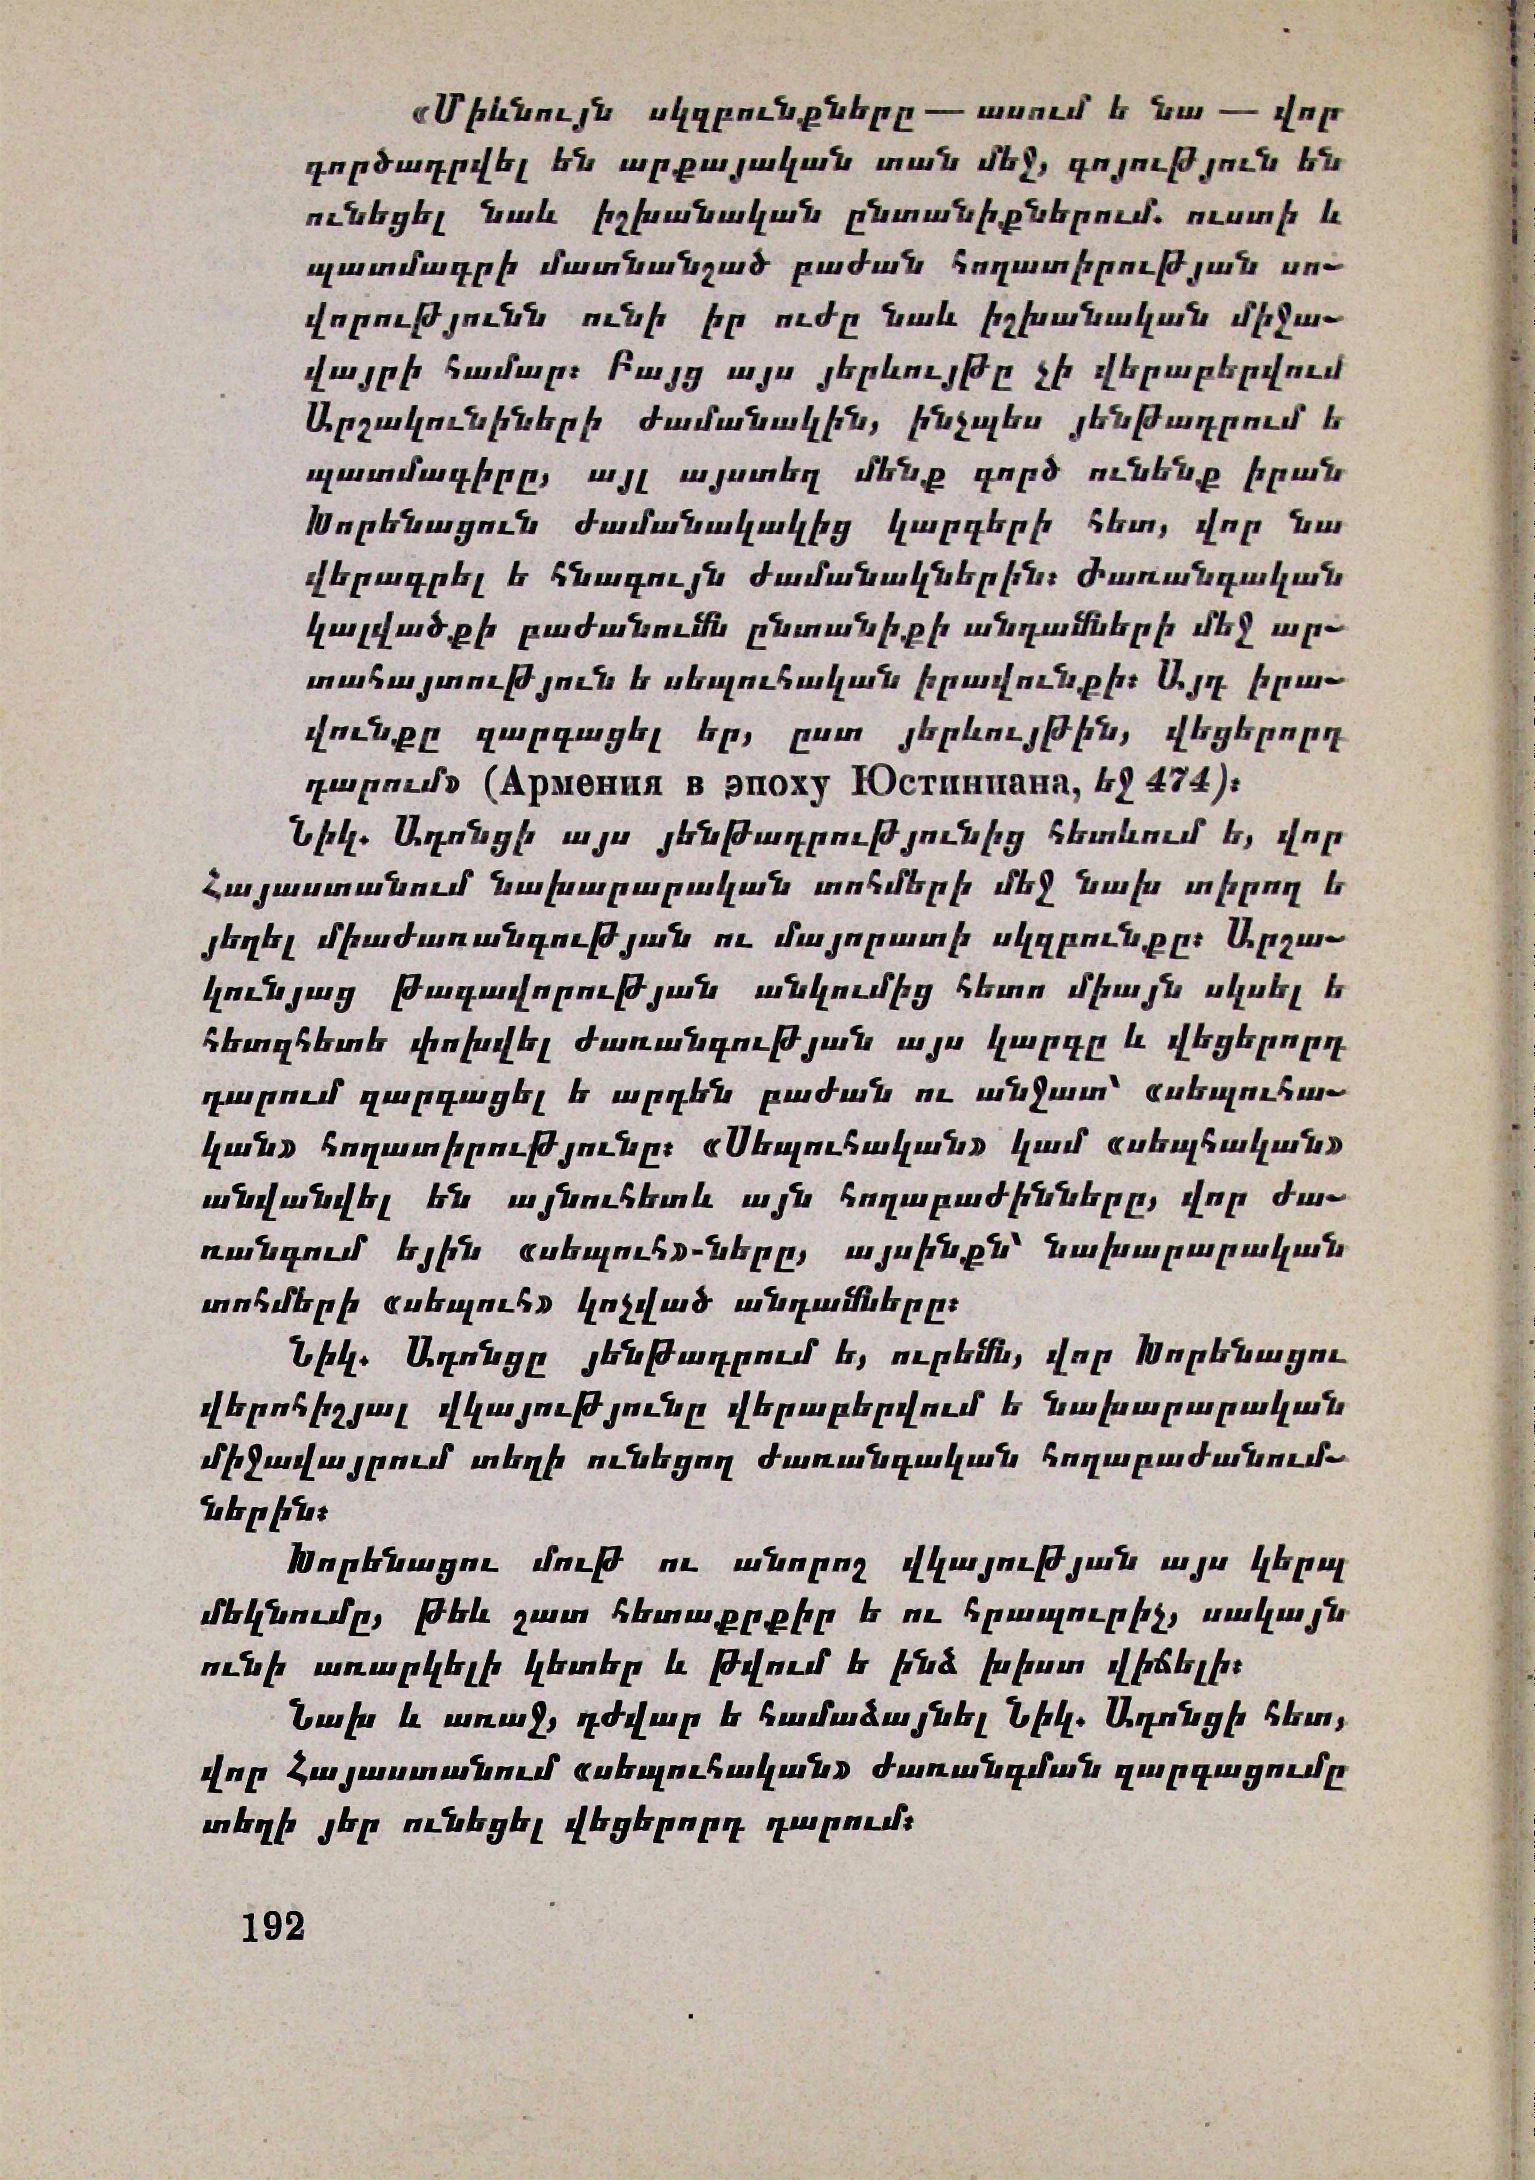 «Միևնույն սկզբունքները — ասում ե նա — վոր
գործադրվել են արքայական տան մեջ, գոյություն են
ունեցել նաև իշխանական ընտանիքներում. ուստի և
պատմագրի մատնանշած բաժան հողատիրության սո-
վորությունն ունի իր ուժը նաև իշխանական միջա-
վայրի համար։ Բայց այս յերևույթը չի վերաբերվում
Արշակունիների ժամանակին, ինչպես յենթադրում ե
պատմագիրը, այլ այստեղ մենք գործ ունենք իրան
Խորենացուն ժամանակակից կարգերի հետ, վոր նա
վերագրել ե հնագույն ժամանակներին։ Ժառանգական
կալվածքի բաժանումն ընտանիքի անդամների մեջ ար-
տահայտություն ե սեպուհական իրավունքի։ Այդ իրա-
վունքը զարգացել եր, ըստ յերևույթին, վեցերորդ
դարում» (Армения в эпоху Юстиниана, եջ 474)։
Նիկ. Ադոնցի այս յենթադրությունից հետևում ե, վոր
Հայաստանում նախարարական տոհմերի մեջ նախ տիրող ե
յեղել միաժառանգության ու մայորատի սկզբունքը։ Արշա-
կունյաց թագավորության անկումից հետո միայն սկսել ե
հետզհետե փոխվել ժառանգության այս կարգը և վեցերորդ
դարում զարգացել ե արդեն բաժան ու անջատ՝ «սեպուհա-
կան» հողատիրությունը։ «Սեպուհական» կամ «սեպհական»
անվանվել են այնուհետև այն հողաբաժինները, վոր ժա-
ռանգում եյին «սեպուհ»-ները, այսինքն՝ նախարարական
տոհմերի «սեպուհ» կոչված անդամները։
Նիկ. Ադոնցը յենթադրում ե, ուրեմն, վոր Խորենացու
վերոհիշյալ վկայությունը վերաբերվում ե նախարարական
միջավայրում տեղի ունեցող ժառանգական հողաբաժանում-
ներին։
Խորենացու մութ ու անորոշ վկայության այս կերպ
մեկնումը, թեև շատ հետաքրքիր ե ու հրապուրիչ, սակայն
ունի առարկելի կետեր և թվում ե ինձ խիստ վիճելի։
Նախ և առաջ, դժվար ե համաձայնել Նիկ. Ադոնցի հետ,
վոր Հայաստանում «սեպուհական» ժառանգման զարգացումը
տեղի յեր ունեցել վեցերորդ դարում։
192